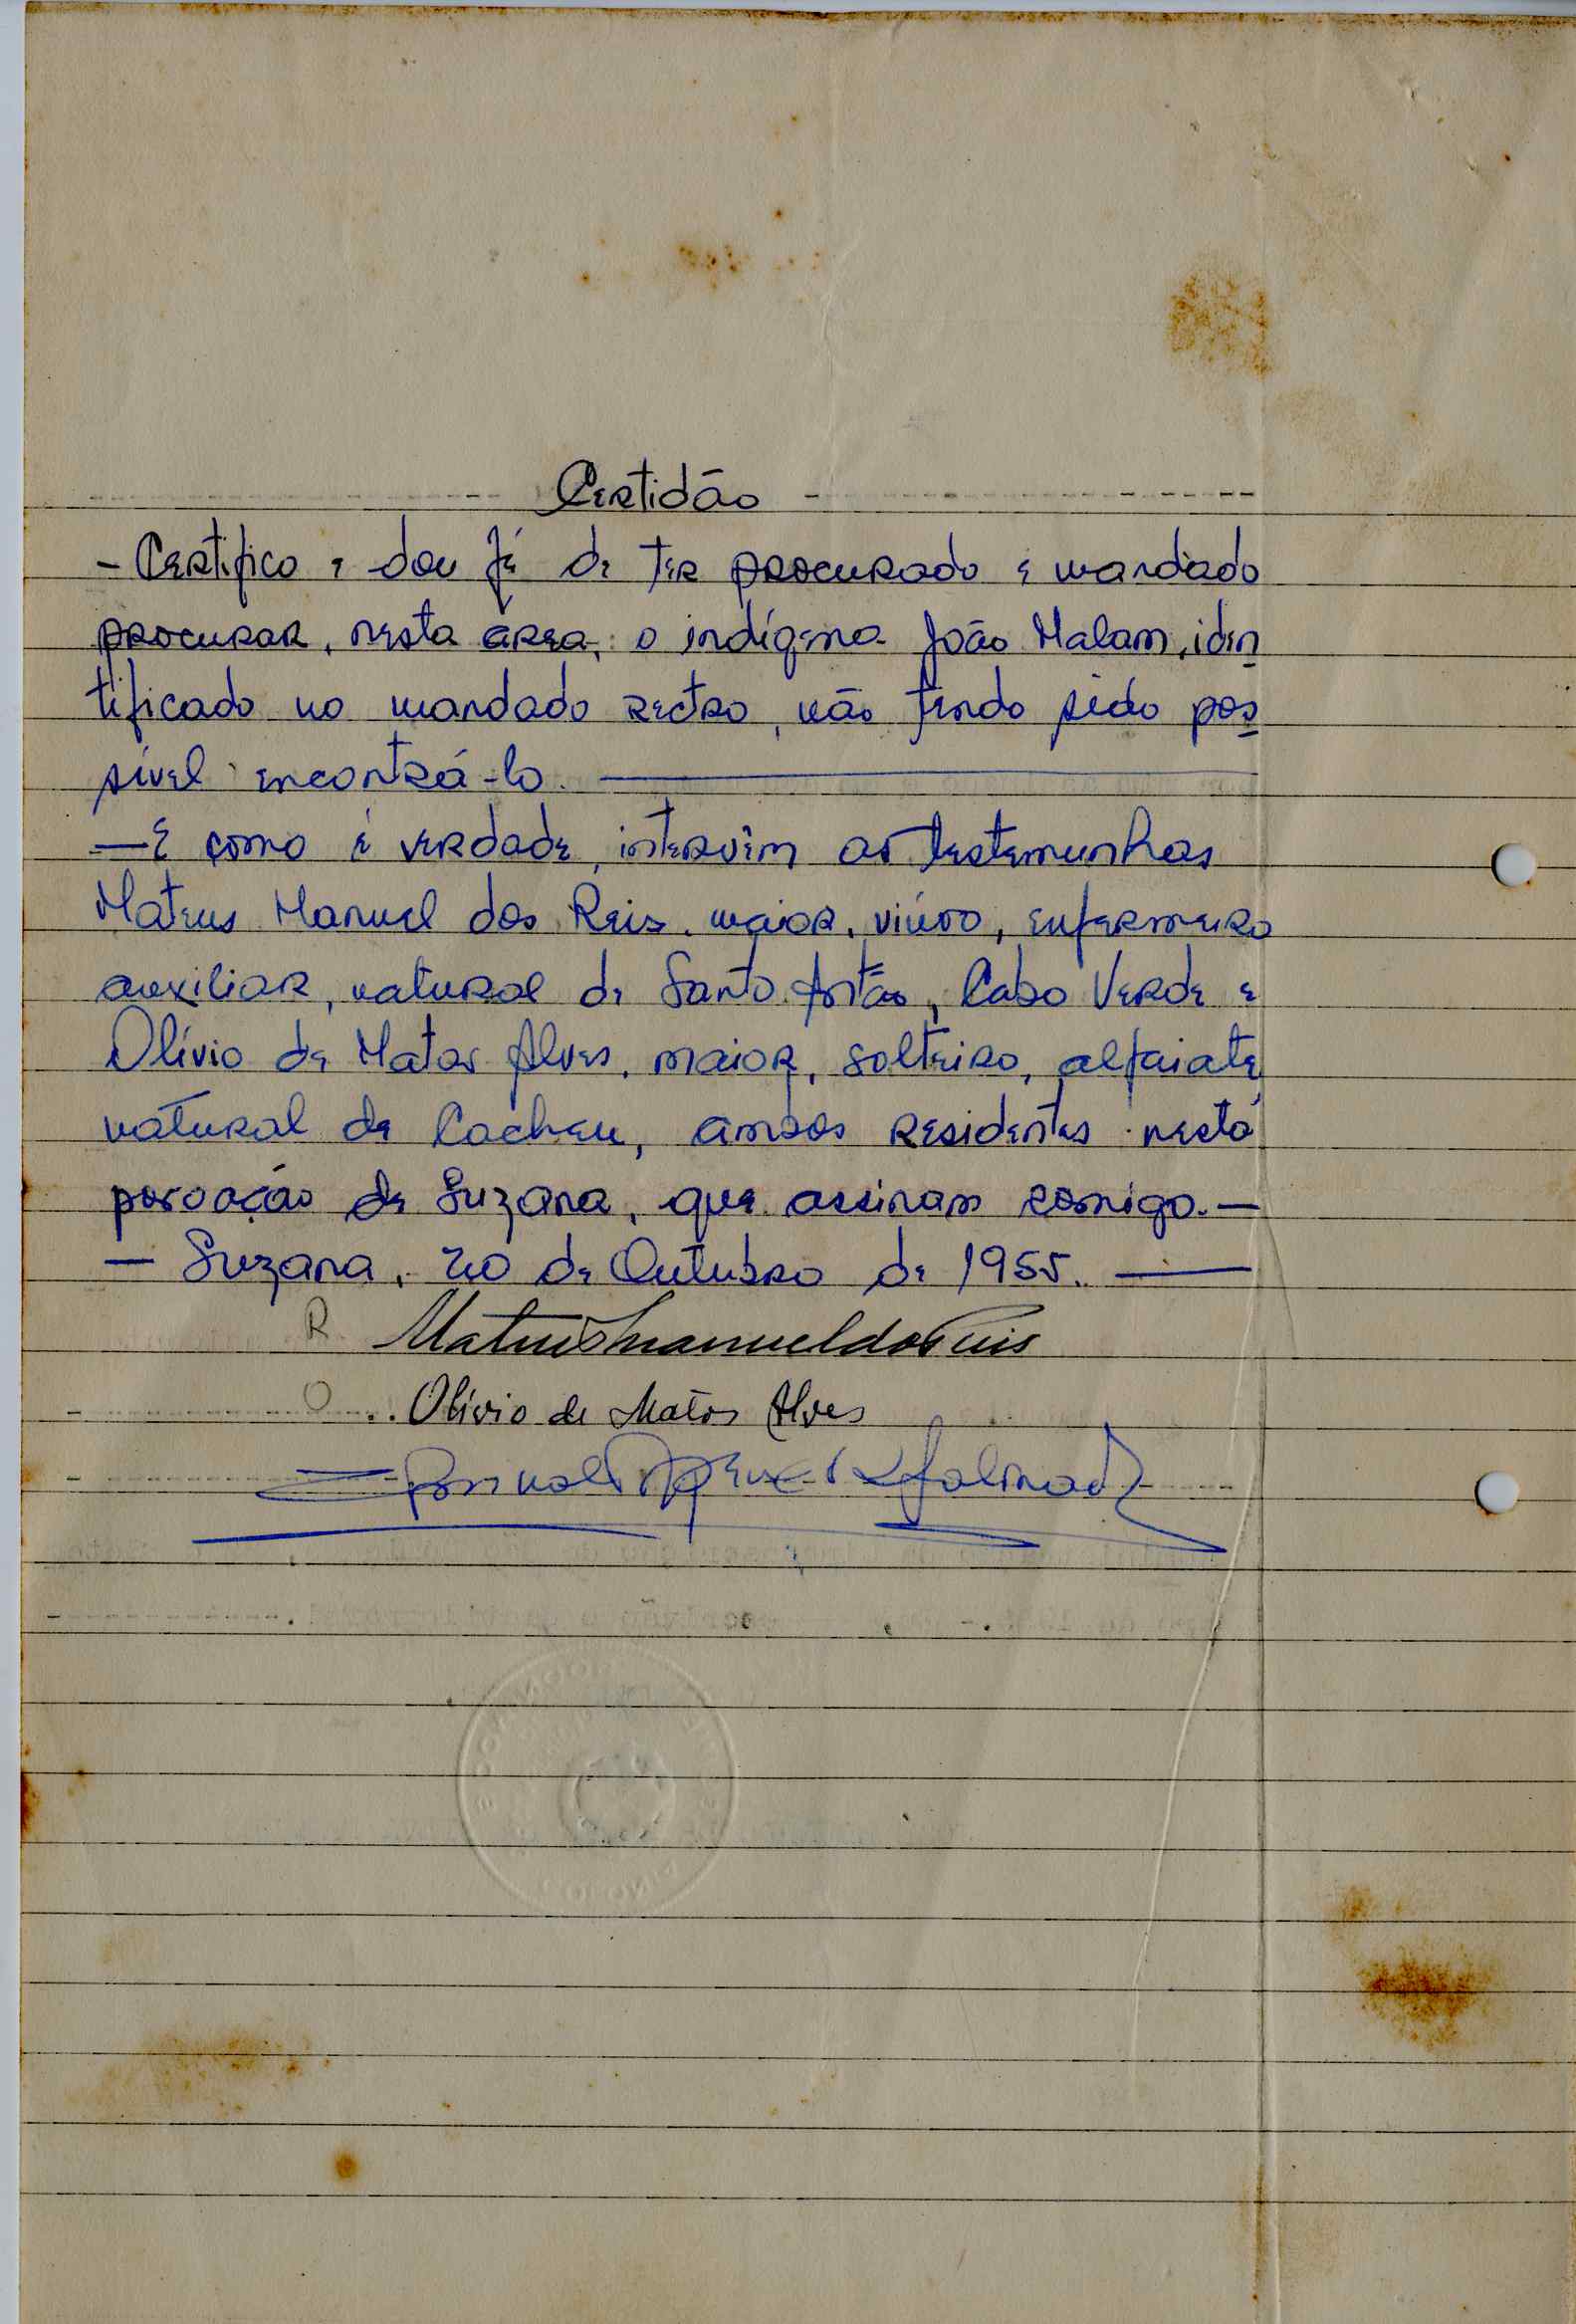 Certidão
- Certifico e dou fé de ter procurado e mandado
procurar, nesta área, o indígena João Malam, iden
tificado no mandado rectro, não tendo sido pos
sível encontrá-lo.
— E como é verdade, intervêm as testemunhas
Mateus Manuel dos Reis, maior, viúvo, enfermeiro
auxiliar, natural de Santo Antão, Cabo Verde e
Olívio de Matos Alves, maior, solteiro, alfaiate,
natural de Cacheu, ambos residentes nesta
povoação de Suzana, que assinam comigo. —
— Suzana, 20 de Outubro de 1955. —
R Mateus Manuel dos Reis
O Olívio de Matos Alves